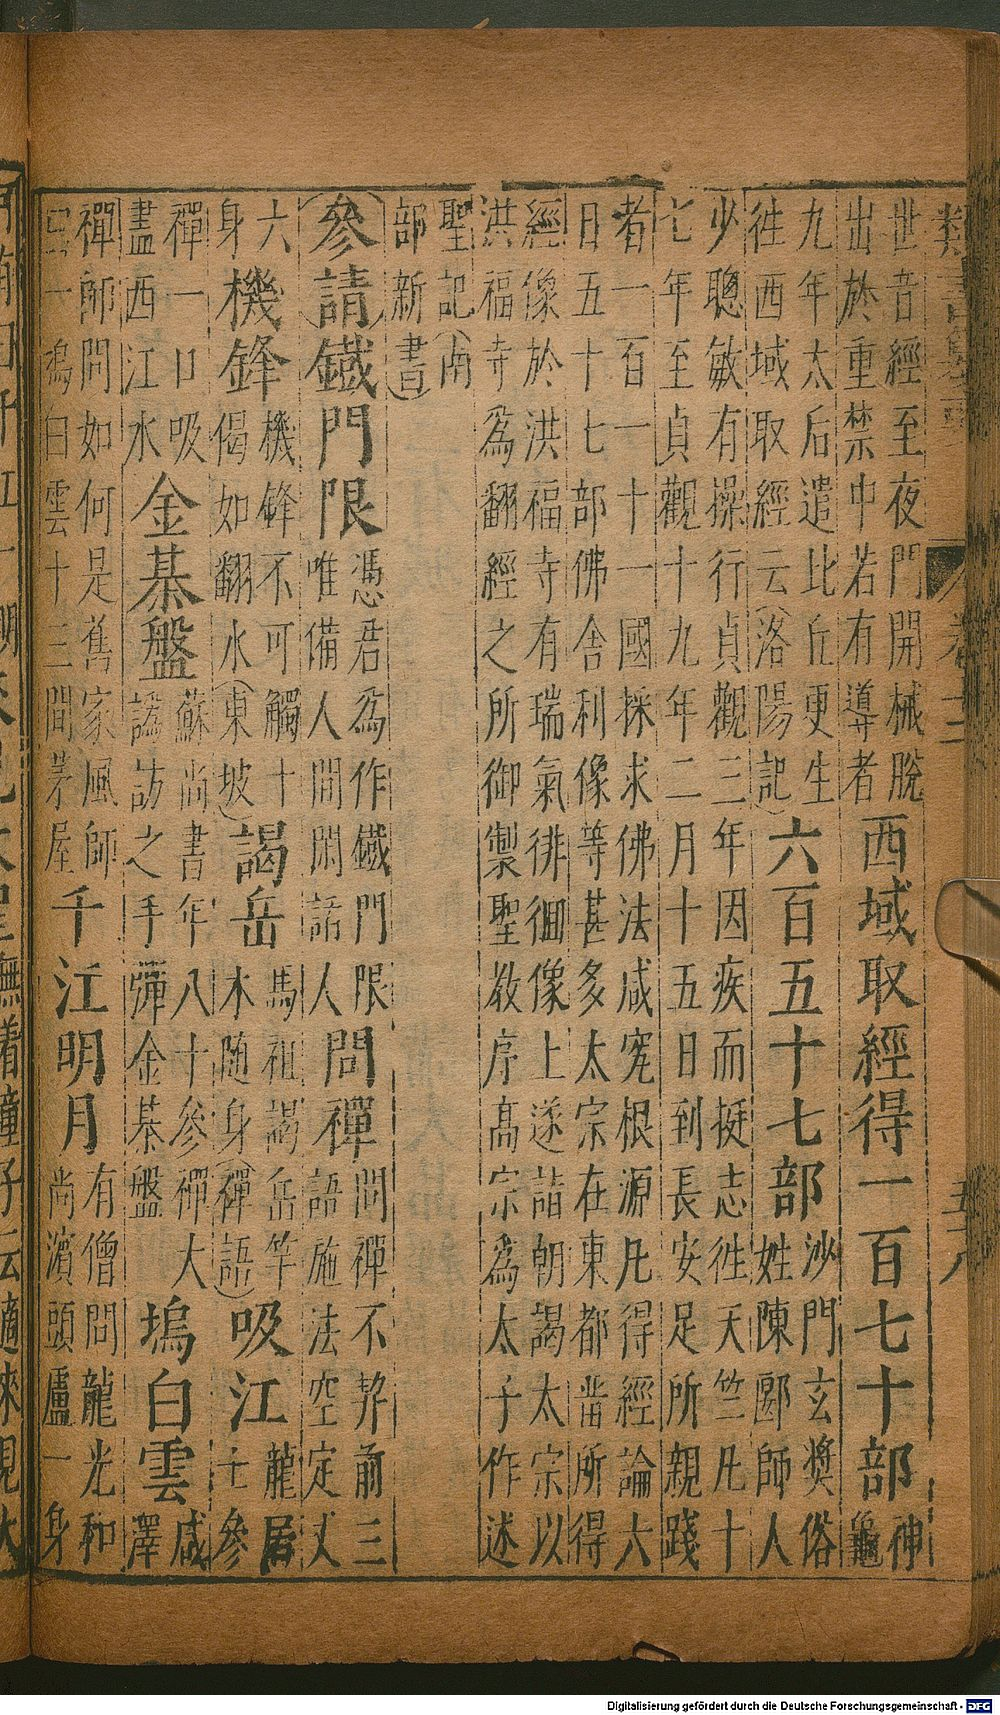 世音經至夜門開械脫
出於重禁中若有導者
西域取經得一百七十部
神
龜
九年太后遣比丘更生
往西域取經云(洛陽記)
六百五十七部
沙門玄奘俗
姓陳郾師人
少聰敏有操行貞觀三年因疾而挺志往天竺凡十
七年至貞觀十九年二月十五日到長安足所親踐
者一百一十一國採求佛法咸究根源凡得經論六
日五十七部佛舍利像等甚多太宗在東都凿所得
經像於洪福寺有瑞氣徘徊像上遂詣朝謁太宗以
洪福寺為翻經之所御製聖教序高宗為太子作述
聖記(南
部新書)
(參請)鐵門限
憑君為作鐵門限
唯備人間閑話人
問禪
問禪不契前三
語施法空定丈
六
身
機鋒
機鋒不可觸十
偈如翻水(東坡)
謁岳
馬祖謁岳竿
木隨身(禪語)
吸江
龍居
士參
禪一口吸
盡西江水
金棊盤
蘇尚書年八十參禪大
訪之手彈金棊盤
塢白雲
咸
澤
禪師問如何是舊家風師
云一塢白雲十三間茅屋
千江明月
有僧問龍光和
尚濱頭盧一身
Digitalisierung gefördert durch die Deutsche Forschungsgemeinschaft - DFG